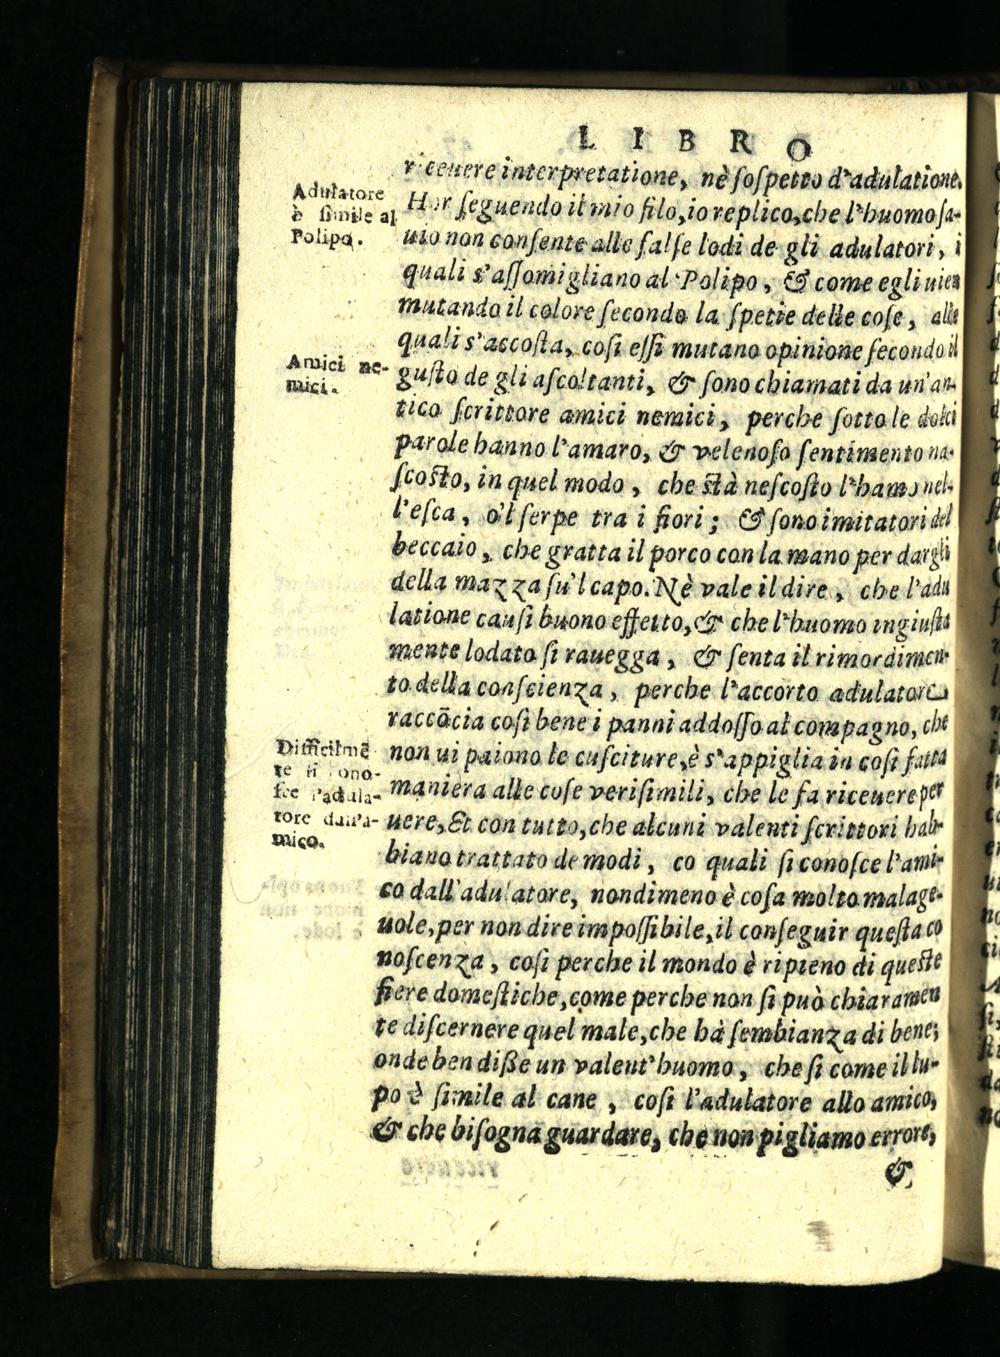 LIBRO
riceuere interpretatione, nè ſoſpetto d'adulatione.
Hor ſeguendo il mio filo, io replico, che l'huomo ſa-
uio non conſente alle falſe lodi de gli adulatori, i
quali s'aſſomigliano al Polipo, & come egli uien
mutando il colore ſecondo la ſpetie delle coſe, alle
quali s'accoſta, coſi eſſi mutano opinione ſecondo il
guſto de gli aſcoltanti, & ſono chiamati da un'an-
tico ſcrittore amici nemici, perche ſotto le dolci
parole hanno l'amaro, & velenoſo ſentimento na-
ſcoſto, in quel modo, che ſtà neſcoſto l'hamo nel-
l'eſca, o'l ſerpe tra i fiori; & ſono imitatori del
beccaio, che gratta il porco con la mano per dargli
della mazza ſu'l capo. Nè vale il dire, che l'adu
latione cauſi buono effetto, & che l'huomo ingiuſta
mente lodato ſi rauegga, & ſenta il rimordimen-
to della conſcienza, perche l'accorto adulatore
raccōcia coſi bene i panni addoſſo al compagno, che
non ui paiono le cuſciture, è s'appiglia in coſi fatta
maniera alle coſe veriſimili, che le fa riceuere per
uere, Et con tutto, che alcuni valenti ſcrittori hab-
biano trattato de modi, co quali ſi conoſce l'ami-
co dall'adulatore, nondimeno è coſa molto malage-
uole, per non dire impoſſibile, il conſeguir queſta co
noſcenza, coſi perche il mondo è ripieno di queſte
fiere domeſtiche, come perche non ſi può chiaramen
te diſcernere quel male, che hà ſembianza di bene;
onde ben diſſe un valent'huomo, che ſi come il lu-
po è ſimile al cane, coſi l'adulatore allo amico,
& che biſogna guardare, che non pigliamo errore,
&
Adulatore
è ſimile al
Polipo.
Amici ne-
mici.
Difficilmē
te ſi cono-
ſce l'adula-
tore dall'a-
mico.